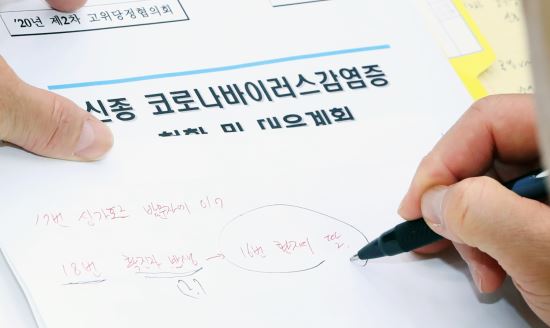 '20년 제2차 고위당정협의회
신종 코로나바이러스감염증
현황 및 대응계획
17번 싱가포르 방문자
18번 확진자 발생 → 16번 환자의 딸.